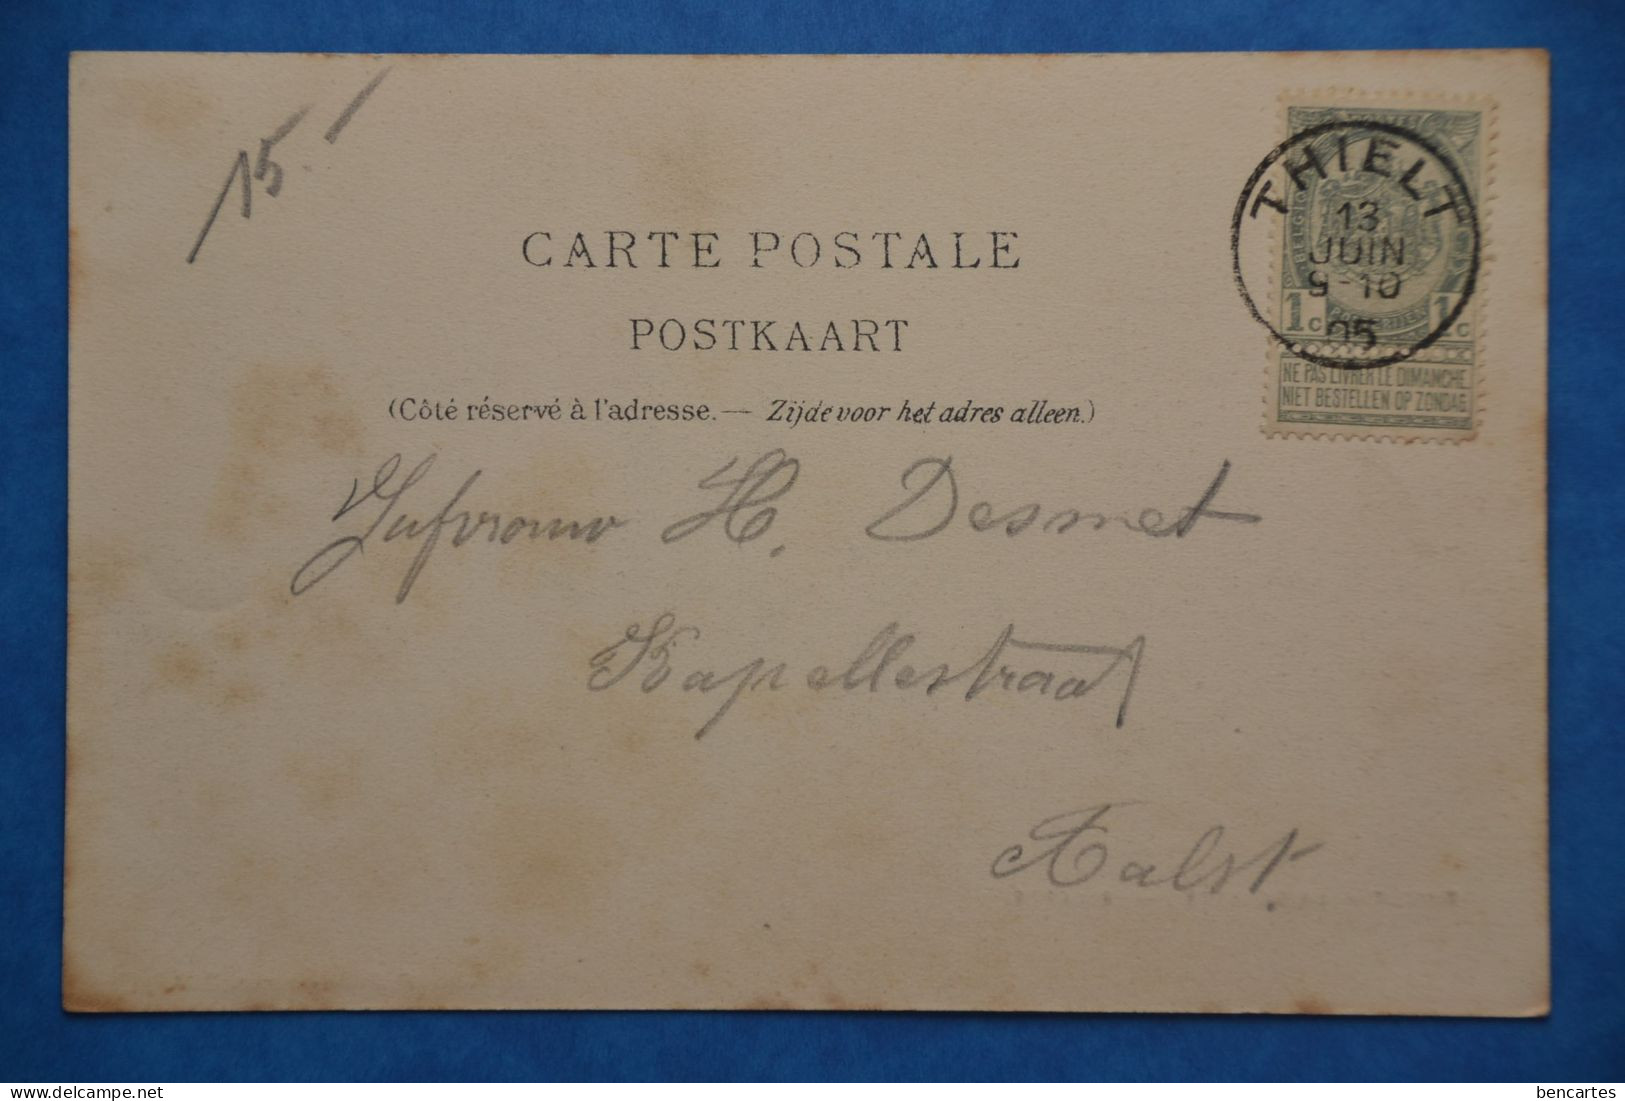 15.-
CARTE POSTALE
POSTKAART
(Côté réservé à l'adresse. — Zijde voor het adres alleen.)
THIELT
13
JUIN
9-10
05
1c 1c
NE PAS LIVRER LE DIMANCHE
NIET BESTELLEN OP ZONDAG
Jufvrouw H. Desmet
Kapellestraat
Aalst.
bencartes